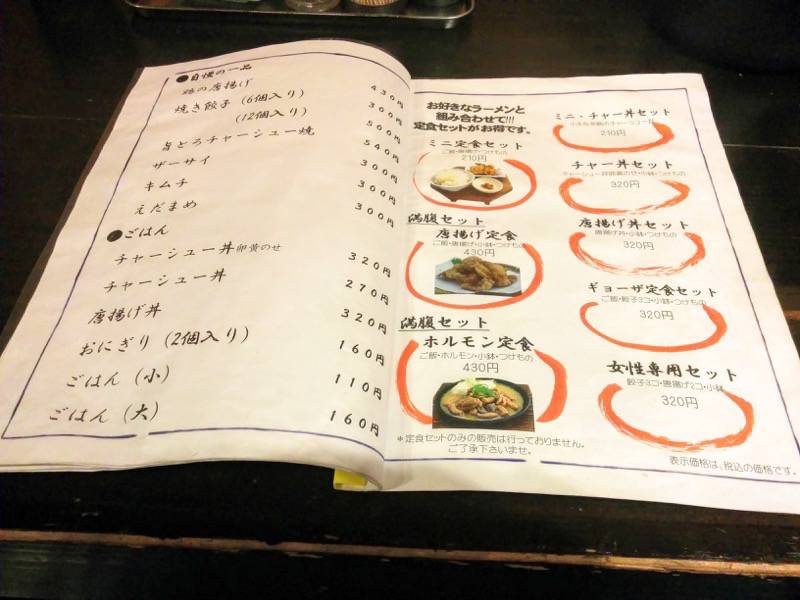 ●自慢の一品
鶏の唐揚げ 430円
焼き餃子 (6個入り) 300円
(12個入り) 500円
旨とろチャーシュー焼 540円
ザーサイ 300円
キムチ 300円
えだまめ 300円
●ごはん
チャーシュー丼 卵黄のせ 320円
チャーシュー丼 270円
唐揚げ丼 320円
おにぎり (2個入り) 160円
ごはん (小) 110円
ごはん (大) 160円
お好きなラーメンと
組み合わせて!!!
定食セットがお得です。
ミニ定食セット
ご飯・唐揚げ・つけもの
210円
満腹セット
唐揚げ定食
ご飯・唐揚げ・小鉢・つけもの
430円
満腹セット
ホルモン定食
ご飯・ホルモン・小鉢・つけもの
430円
*定食セットのみの販売は行っておりません。
ご了承下さいませ。
ミニ・チャー丼セット
210円
チャー丼セット
チャーシュー丼卵黄のせ・小鉢・つけもの
320円
唐揚げ丼セット
唐揚げ丼・小鉢・つけもの
320円
ギョーザ定食セット
ご飯・餃子3コ・小鉢・つけもの
320円
女性専用セット
餃子3コ・唐揚げ2コ・小鉢
320円
表示価格は、税込の価格です。